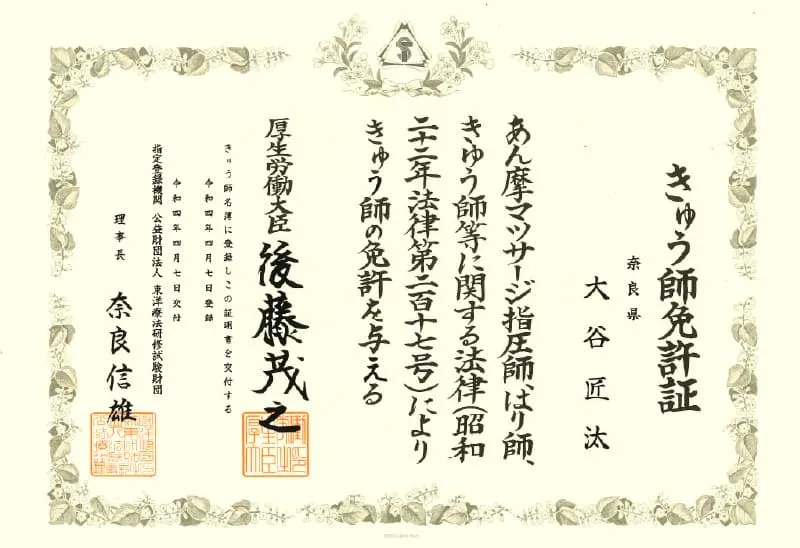 きゅう師免許証
奈良県
大谷匠汰
あん摩マツサージ指圧師、はり師、
きゆう師等に関する法律(昭和
二十二年法律第二百十七号)により
きゅう師の免許を与える
厚生労働大臣 後藤茂之
きゅう師名簿に登録しこの証明書を交付する
令和四年四月七日登録
令和四年四月七日交付
指定登録機関 公益財団法人 東洋療法研修試験財団
理事長 奈良信雄